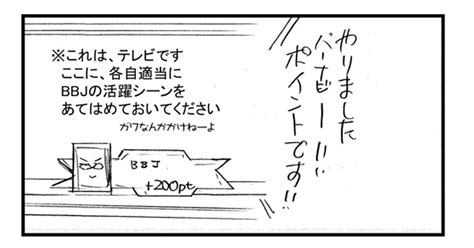 やりました
バーナビーーー!!!
ポイントです!!
※これは、テレビです
ここに、各自適当に
BBJの活躍シーンを
あてはめておいてください
ガワなんかかけねーよ
BBJ
+200pt